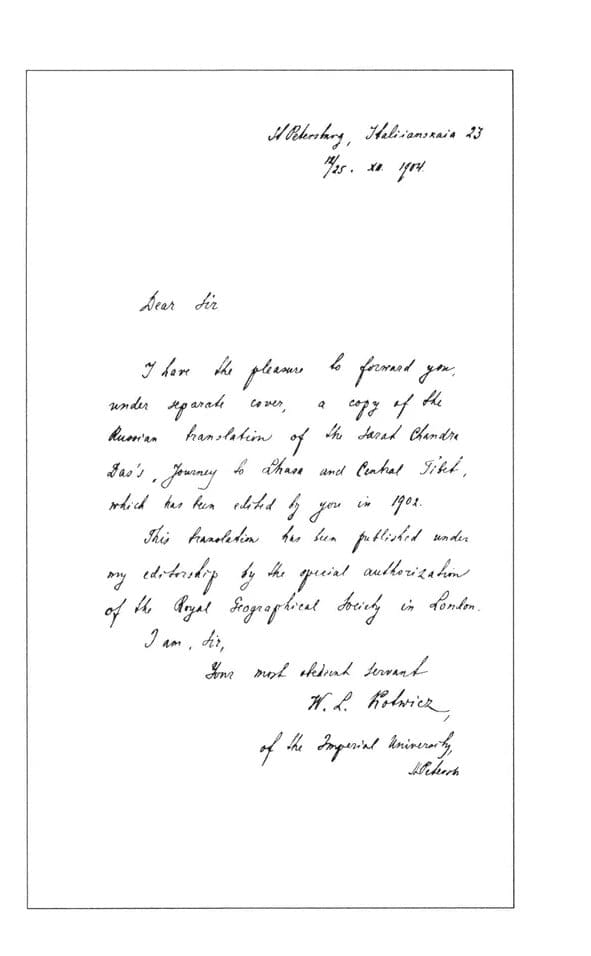 St Petersburg, Italiianskaia 23
12/25. XII. 1904.
Dear Sir
I have the pleasure to forward you,
under separate cover, a copy of the
Russian translation of the Sarat Chandra
Das's, Journey to Lhasa and Central Tibet,
which has been edited by you in 1902.
This translation has been published under
my editorship by the special authorization
of the Royal Geographical Society in London.
I am, Sir,
Your most obedient servant
W. L. Kotwicz,
of the Imperial University,